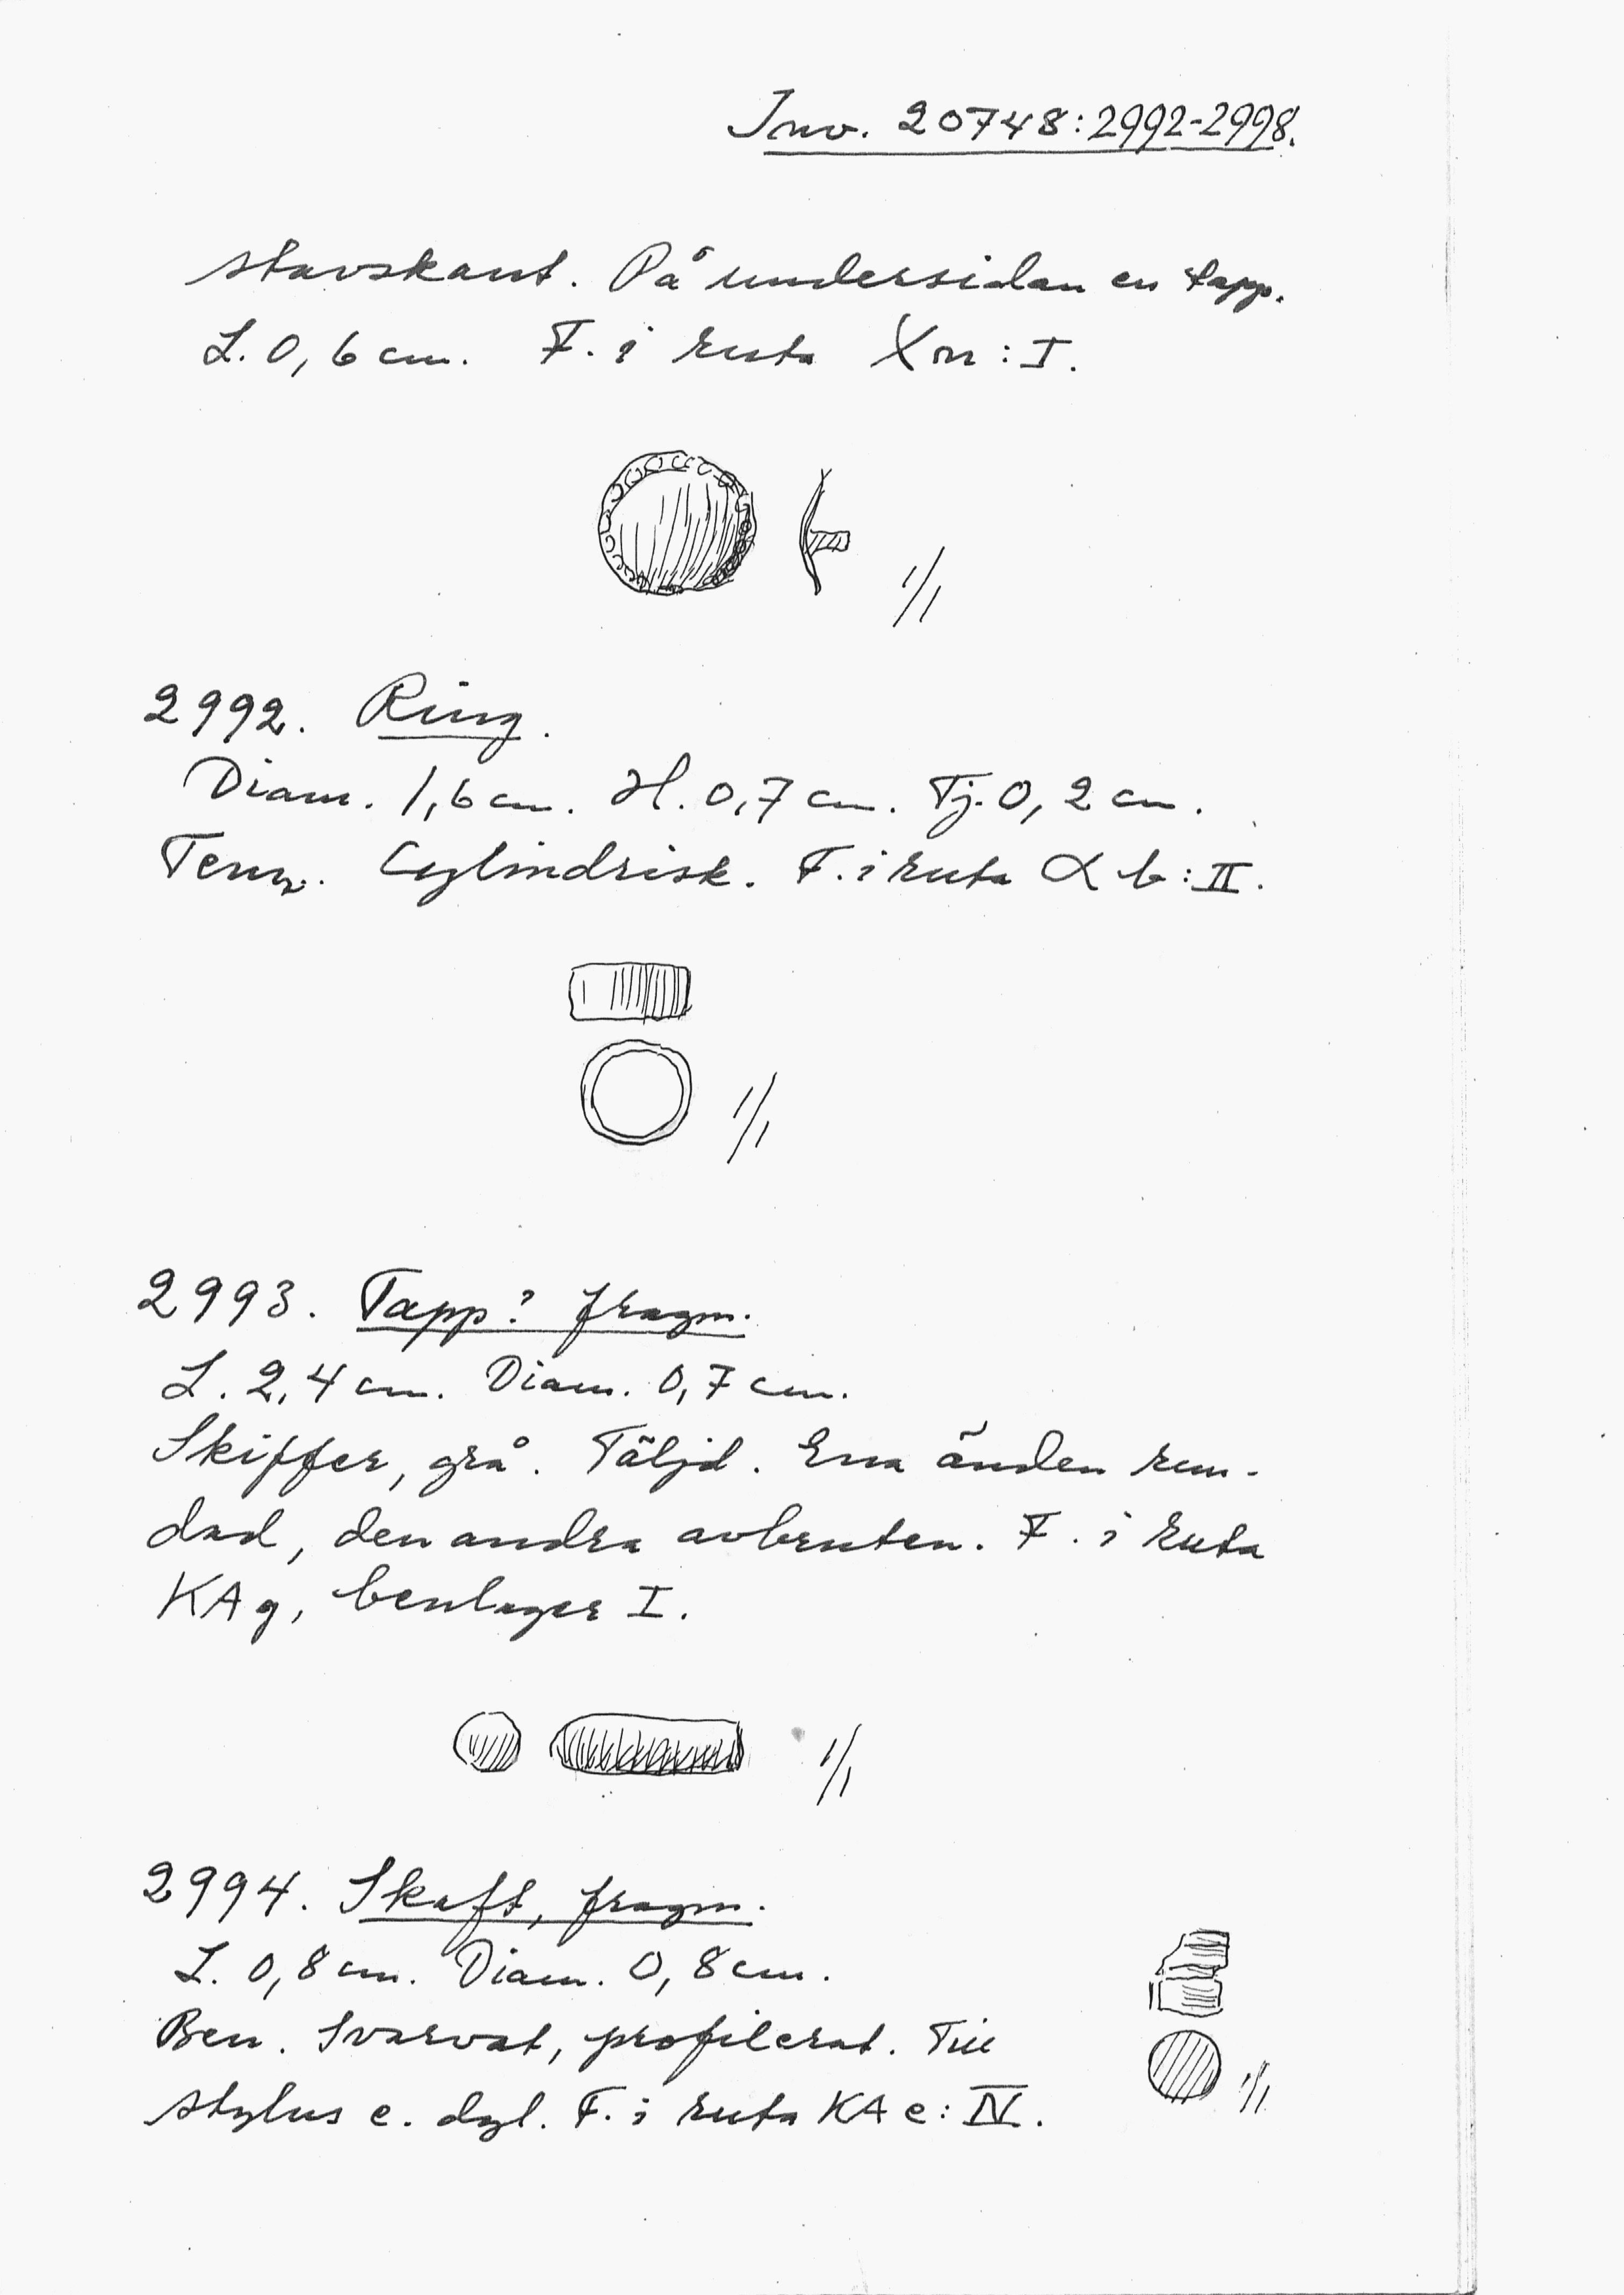 Inv. 20748:2992-2998.
stavskant. På undersidan en tapp.
L. 0,6 cm. F. i ruta Xm:I.
1/1
2992. Ring.
Diam. 1,6 cm. H. 0,7 cm. Tj. 0,2 cm.
Tenn. Cylindrisk. F. i ruta α b:II.
1/1
2993. Tapp? fragm.
L. 2,4 cm. Diam. 0,7 cm.
Skiffer, grå. Täljd. Ena änden run-
dad, den andra avbruten. F. i ruta
KA g, benlager I.
1/1
2994. Skaft, fragm.
L. 0,8 cm. Diam. 0,8 cm.
Ben. Svarvat, profilerat. Till
stylus e. dyl. F. i ruta KA e: IV.
1/1